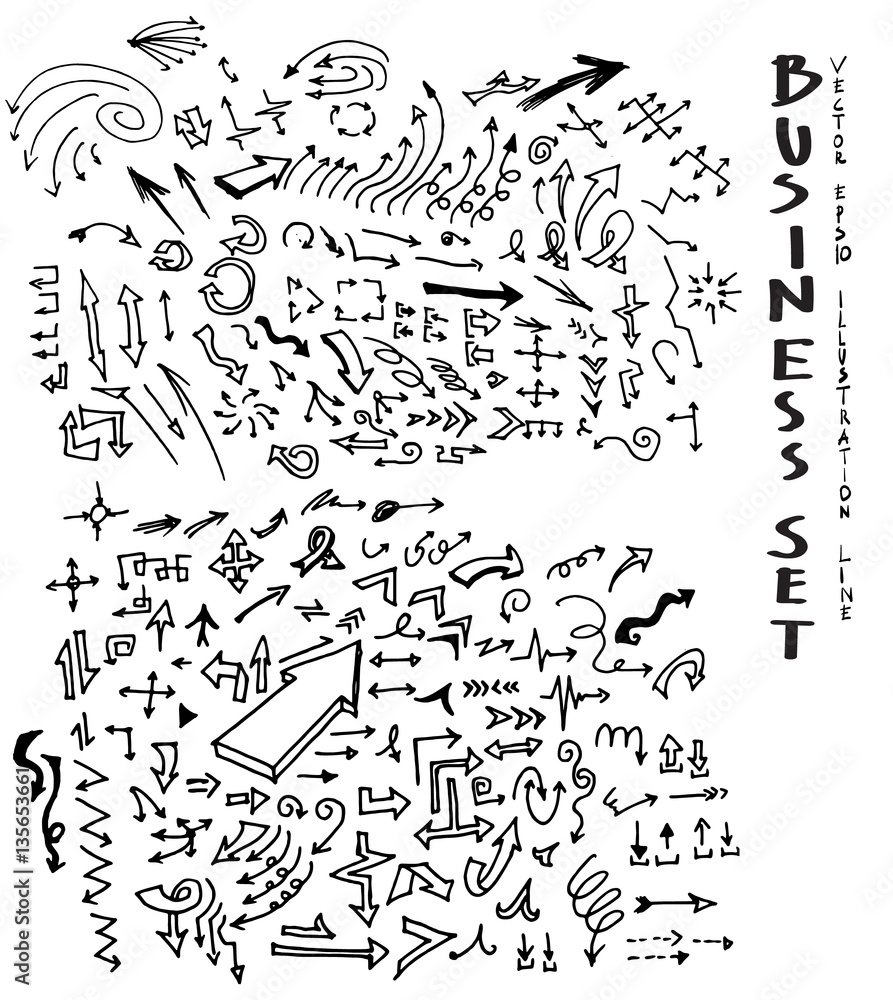 BUSINESS SET
VECTOR EPS10 ILLUSTRATION LINE
Adobe Stock | #135653661